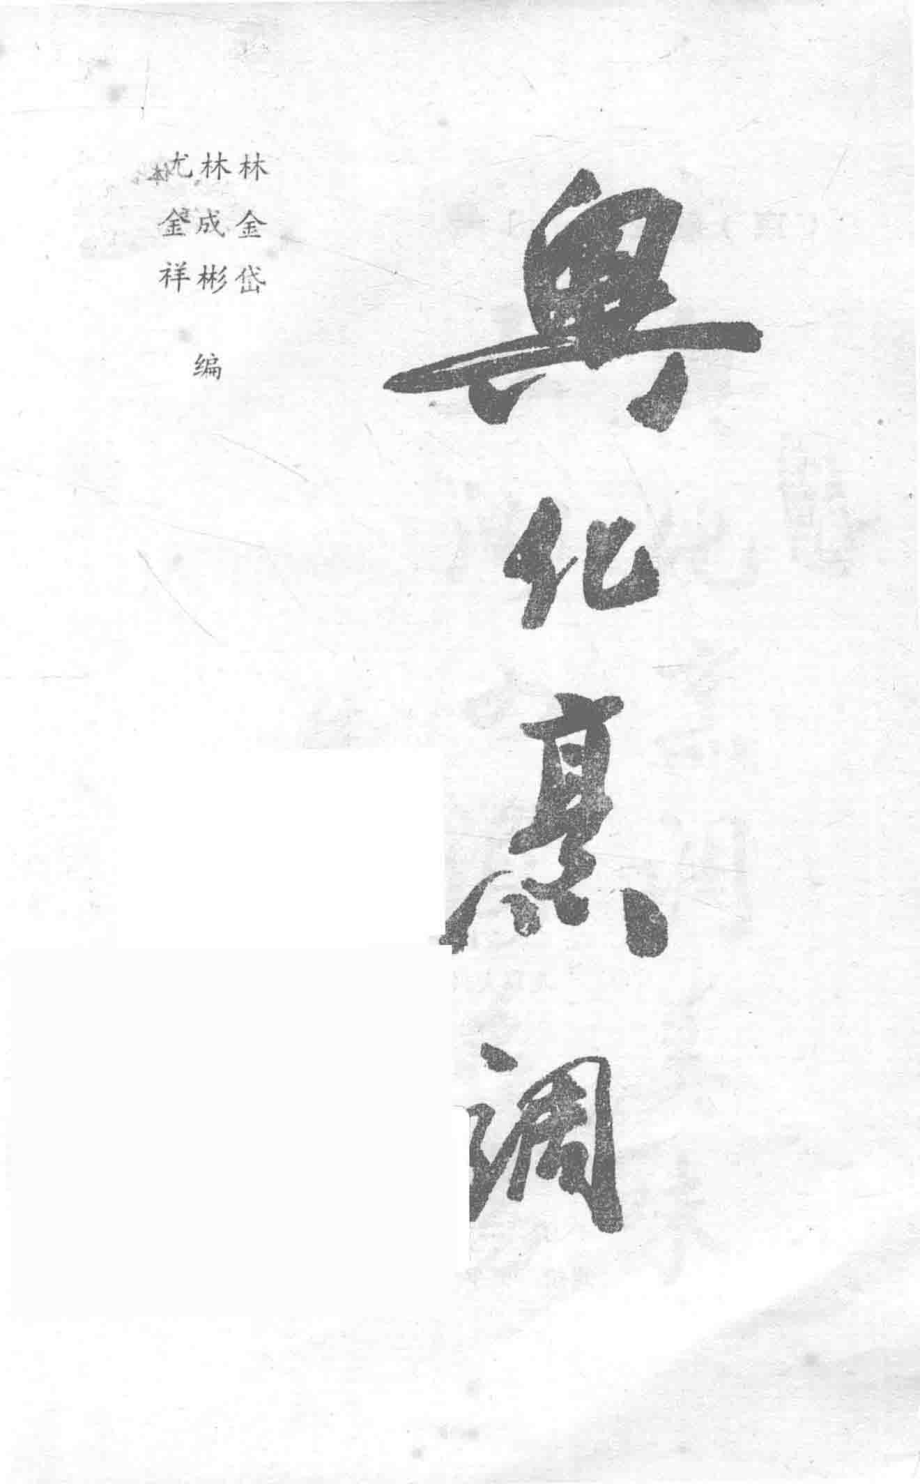 興化烹調
林金岱
林成彬
尤金祥
编